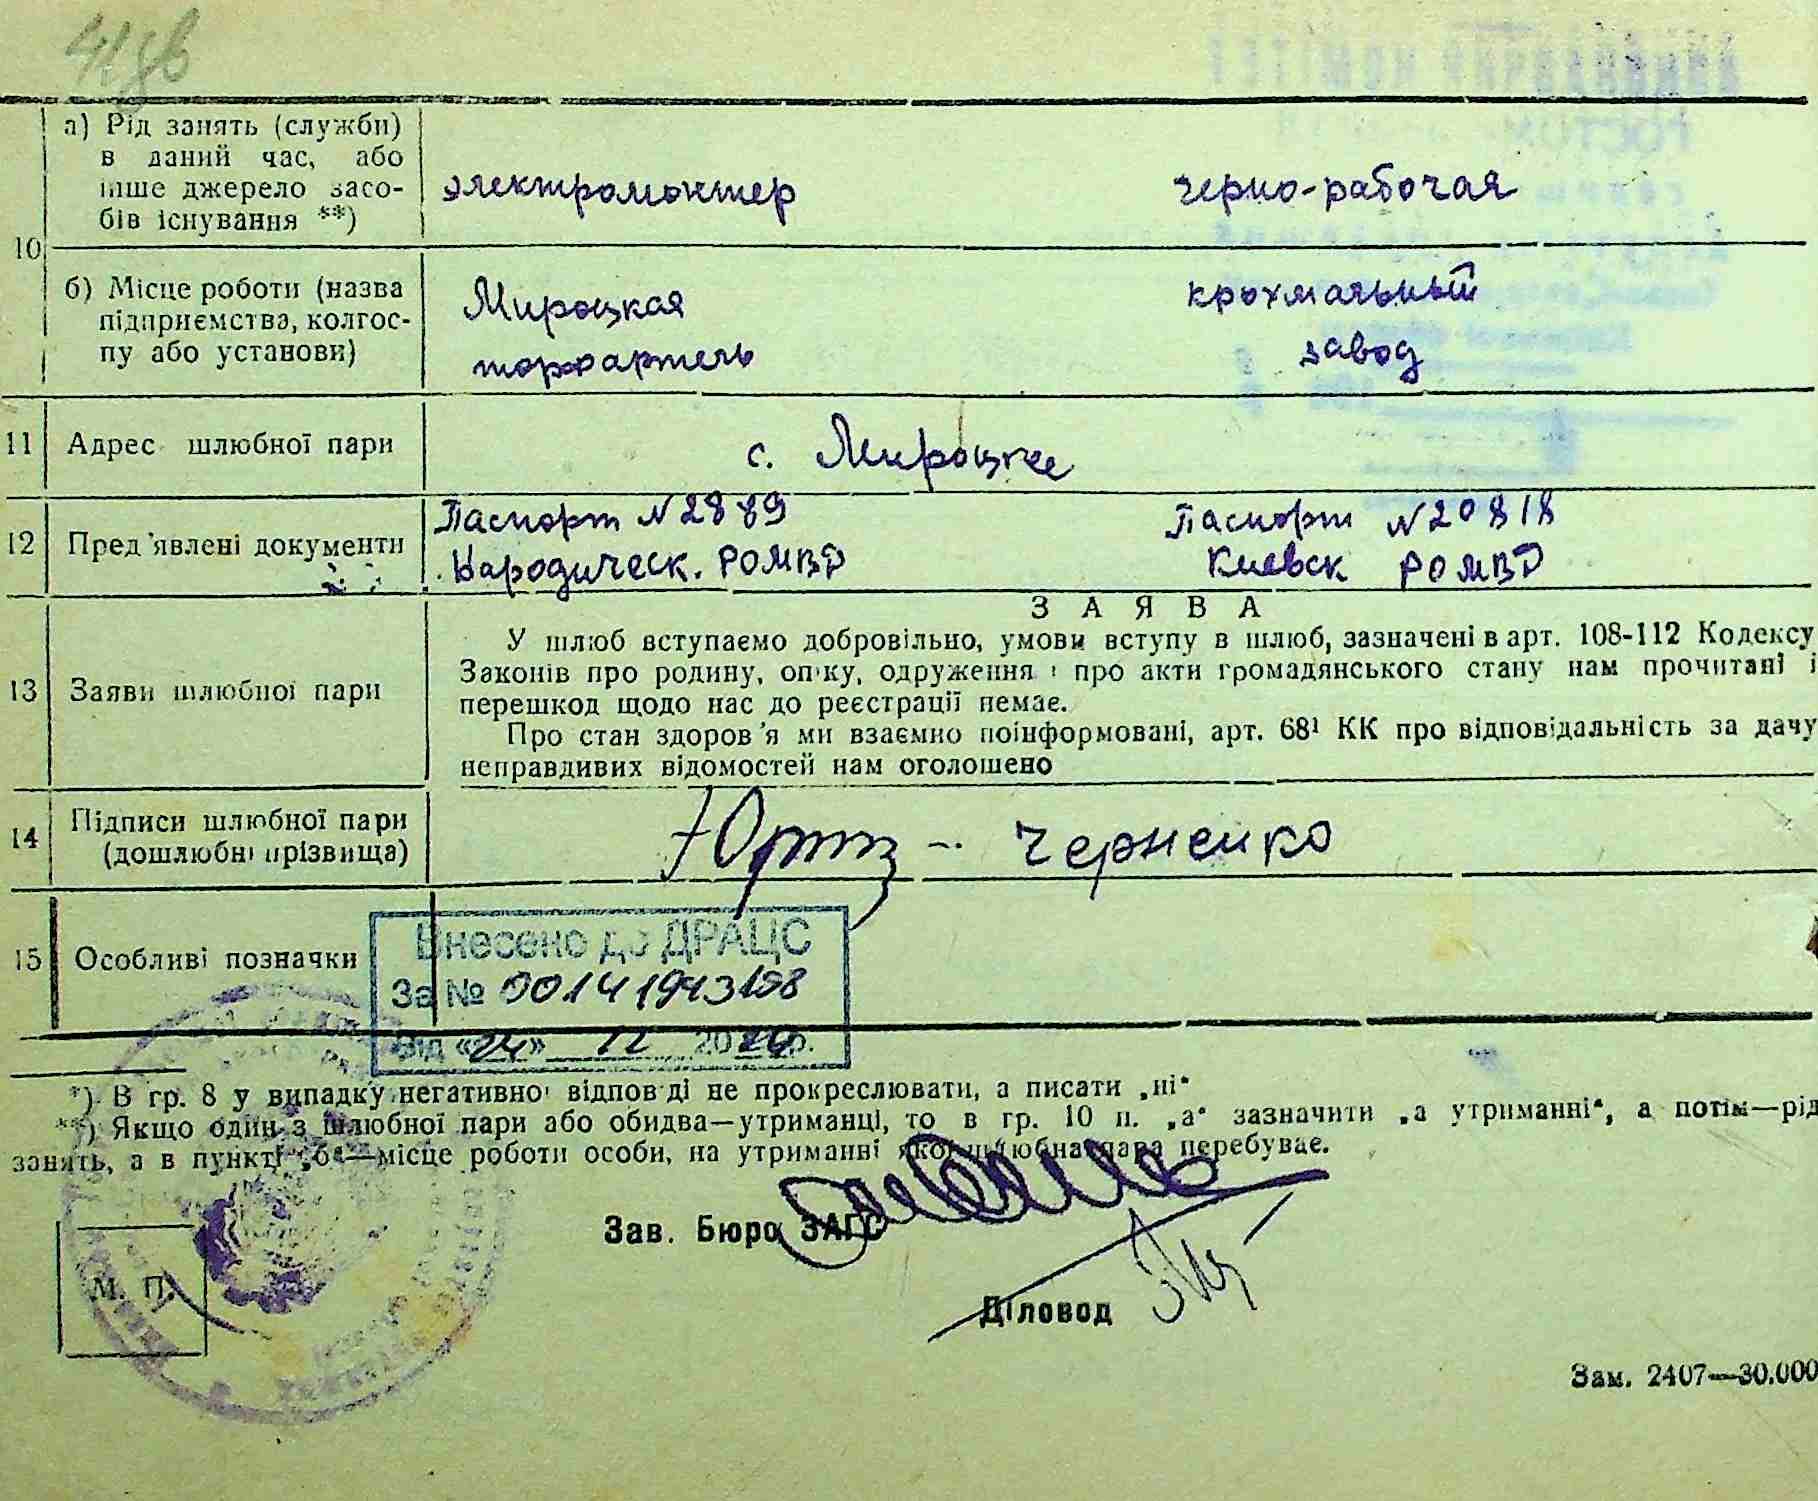 10
а) Рід занять (служби)
в даний час, або
інше джерело засо-
бів існування **)
электромонтер
черно-рабочая
б) Місце роботи (назва
підприємства, колгос-
пу або установи)
Мироцкая
торфартель
крохмальный
завод
11
Адрес шлюбної пари
с. Мироцкое
12
Пред'явлені документи
Паспорт № 2889
Народическ. РОМВД
Паспорт № 20818
Киевск РОМВД
13
Заяви шлюбної пари
ЗАЯВА
У шлюб вступаємо добровільно, умови вступу в шлюб, зазначені в арт. 108-112 Кодексу
Законів про родину, опіку, одруження і про акти громадянського стану нам прочитані і
перешкод щодо нас до реєстрації немає.
Про стан здоров'я ми взаємно поінформовані, арт. 68¹ КК про відповідальність за дачу
неправдивих відомостей нам оголошено
14
Підписи шлюбної пари
(дошлюбні прізвища)
Черненко
15
Особливі позначки
Внесено до ДРАЦС
За № 00141943198
Від «24» 12 20 р.
*) В гр. 8 у випадку негативної відповіді не прокреслювати, а писати „ні“
**) Якщо один з шлюбної пари або обидва—утриманці, то в гр. 10 п. „а“ зазначити „а утриманні“, а потім—рід
занять, а в пункті „б“—місце роботи особи, на утриманні якої шлюбна пара перебуває.
Зав. Бюро ЗАГС
М. П.
Діловод
Зам. 2407—30.000